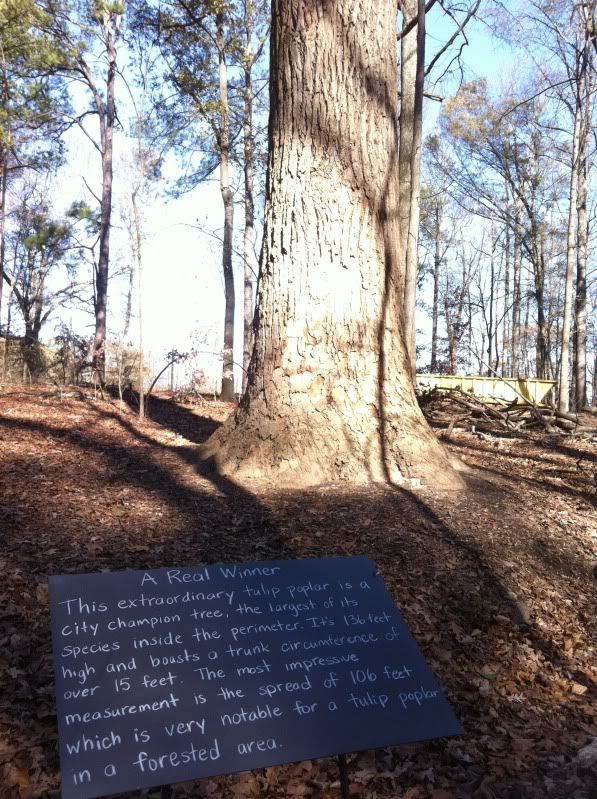 A Real Winner
This extraordinary tulip poplar is a
city champion tree, the largest of its
species inside the perimeter. It's 136 feet
high and boasts a trunk circumference of
over 15 feet. The most impressive
measurement is the spread of 106 feet
which is very notable for a tulip poplar
in a forested area.